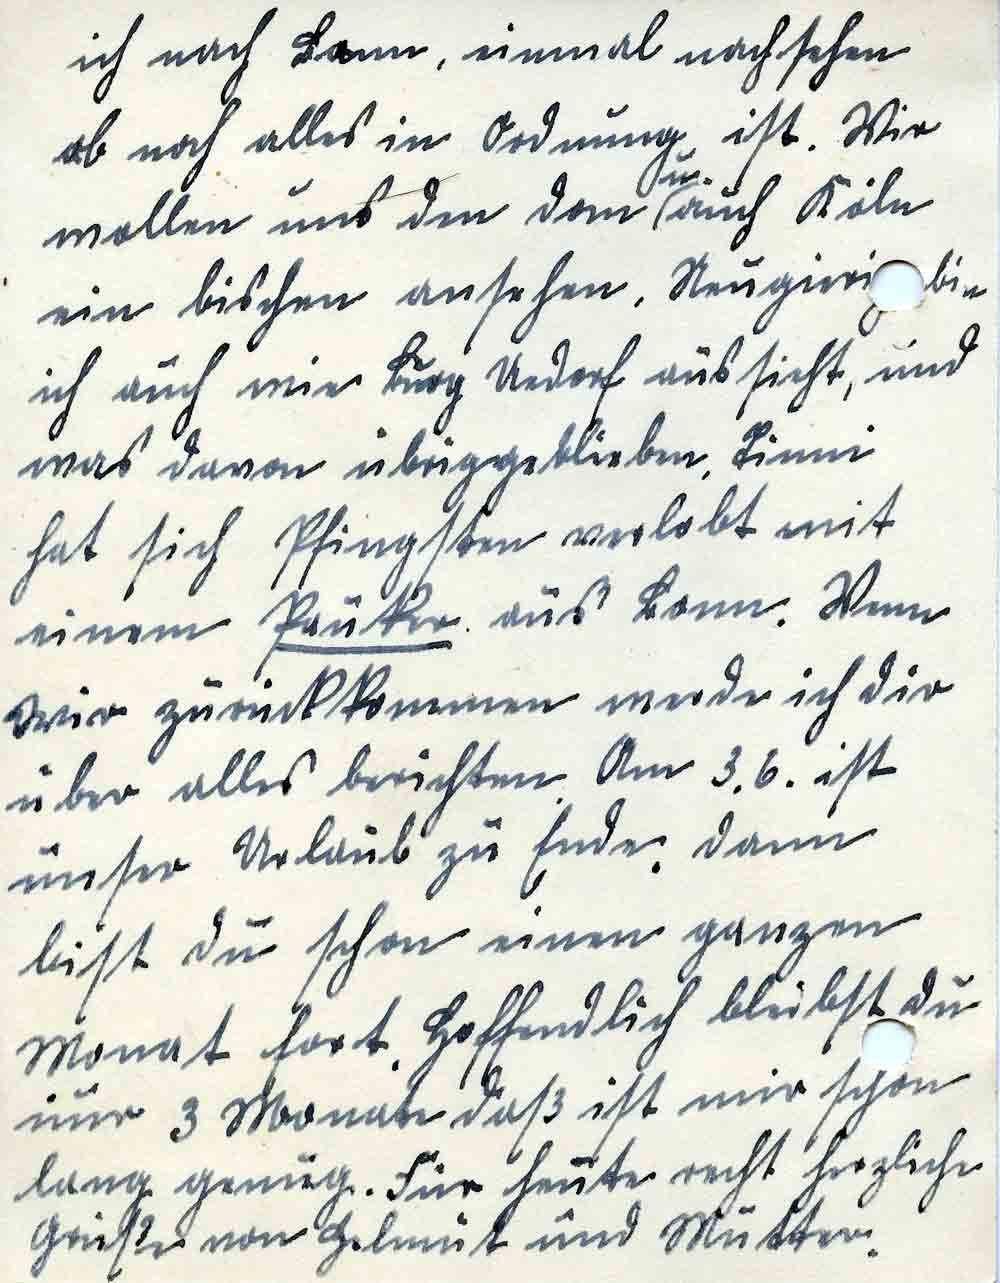 ich nach Bonn, einmal nachsehen
ob noch alles in Ordnung ist. Wir
wollen uns den Dom u. auch Köln
ein bischen ansehen. Neugierig bin
ich auch wie Burg Uedorf aussieht, und
was davon übriggeblieben.
hat sich Pfingsten verlobt mit
einem Pauker aus Bonn. Wenn
wir zurückkommen werde ich dir
über alles berichten. Am 3.6. ist
unser Urlaub zu Ende, dann
bist du schon einen ganzen
Monat fort. Hoffendlich bleibst du
nur 3 Monate daß ist mir schon
lang genug. Für heute recht herzliche
Grüße von Helmut und Mutter.